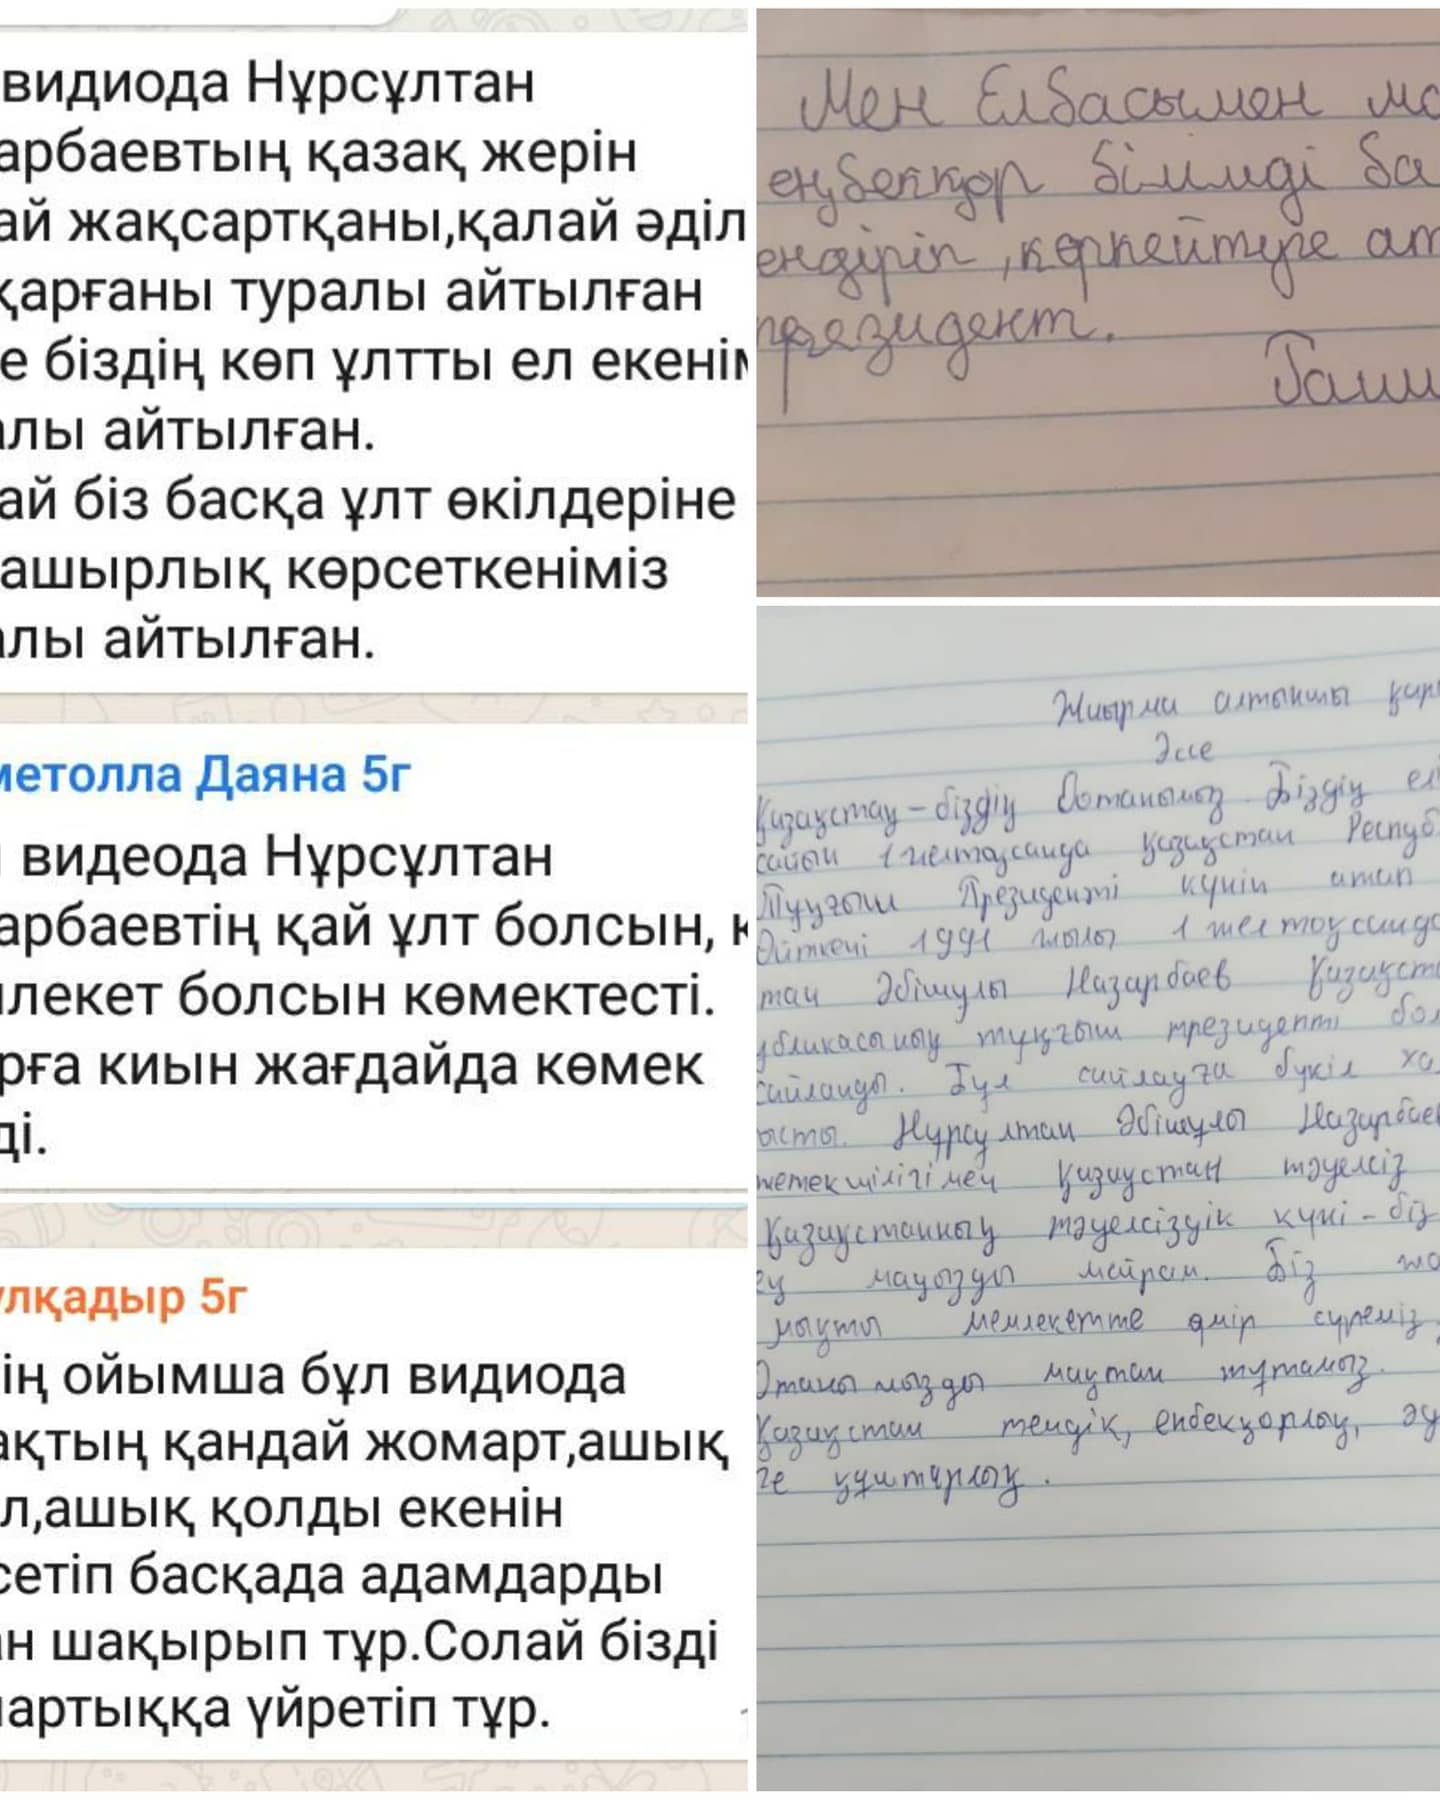 видиода Нұрсұлтан
арбаевтың қазақ жерін
ай жақсартқаны,қалай әділ
қарғаны туралы айтылған
е біздің көп ұлтты ел екенім
алы айтылған.
ай біз басқа ұлт өкілдеріне
ашырлық көрсеткеніміз
алы айтылған.
метолла Даяна 5г
видеода Нұрсұлтан
арбаевтің қай ұлт болсын, к
лекет болсын көмектесті.
рға киын жағдайда көмек
ді.
улқадыр 5г
ің ойымша бұл видиода
ақтың қандай жомарт,ашық
л,ашық қолды екенін
сетіп басқада адамдарды
ан шақырып тұр.Солай бізді
артыққа үйретіп тұр.
Мен Елбасымен ма
еңбекқор білімді ба
ендіріп, көркейтуге ат
президент.
Ғали
Жиырма алтыншы қар
Эссе
Қазақстан – біздің Отанымыз. Біздің ел
сайын 1 желтоқсанда Қазақстан Респуб
Тұңғыш Президенті күнін атап
Өйткені 1991 жылы 1 желтоқсанда
тан Әбішұлы Назарбаев Қазақста
убликасының тұңғыш президенті бол
сайланды. Бұл сайлауға бүкіл ха
ысты. Нұрсұлтан Әбішұлы Назарбаев
жетекшілігімен Қазақстан тәуелсіз
Қазақстанның тәуелсіздік күні – біз
ең маңызды мейрам. Біз
мықты мемлекетте өмір сүреміз,
Отанымызды мақтан тұтамыз.
Қазақстан теңдік, еңбекқорлық, әд
ге құштарлық.